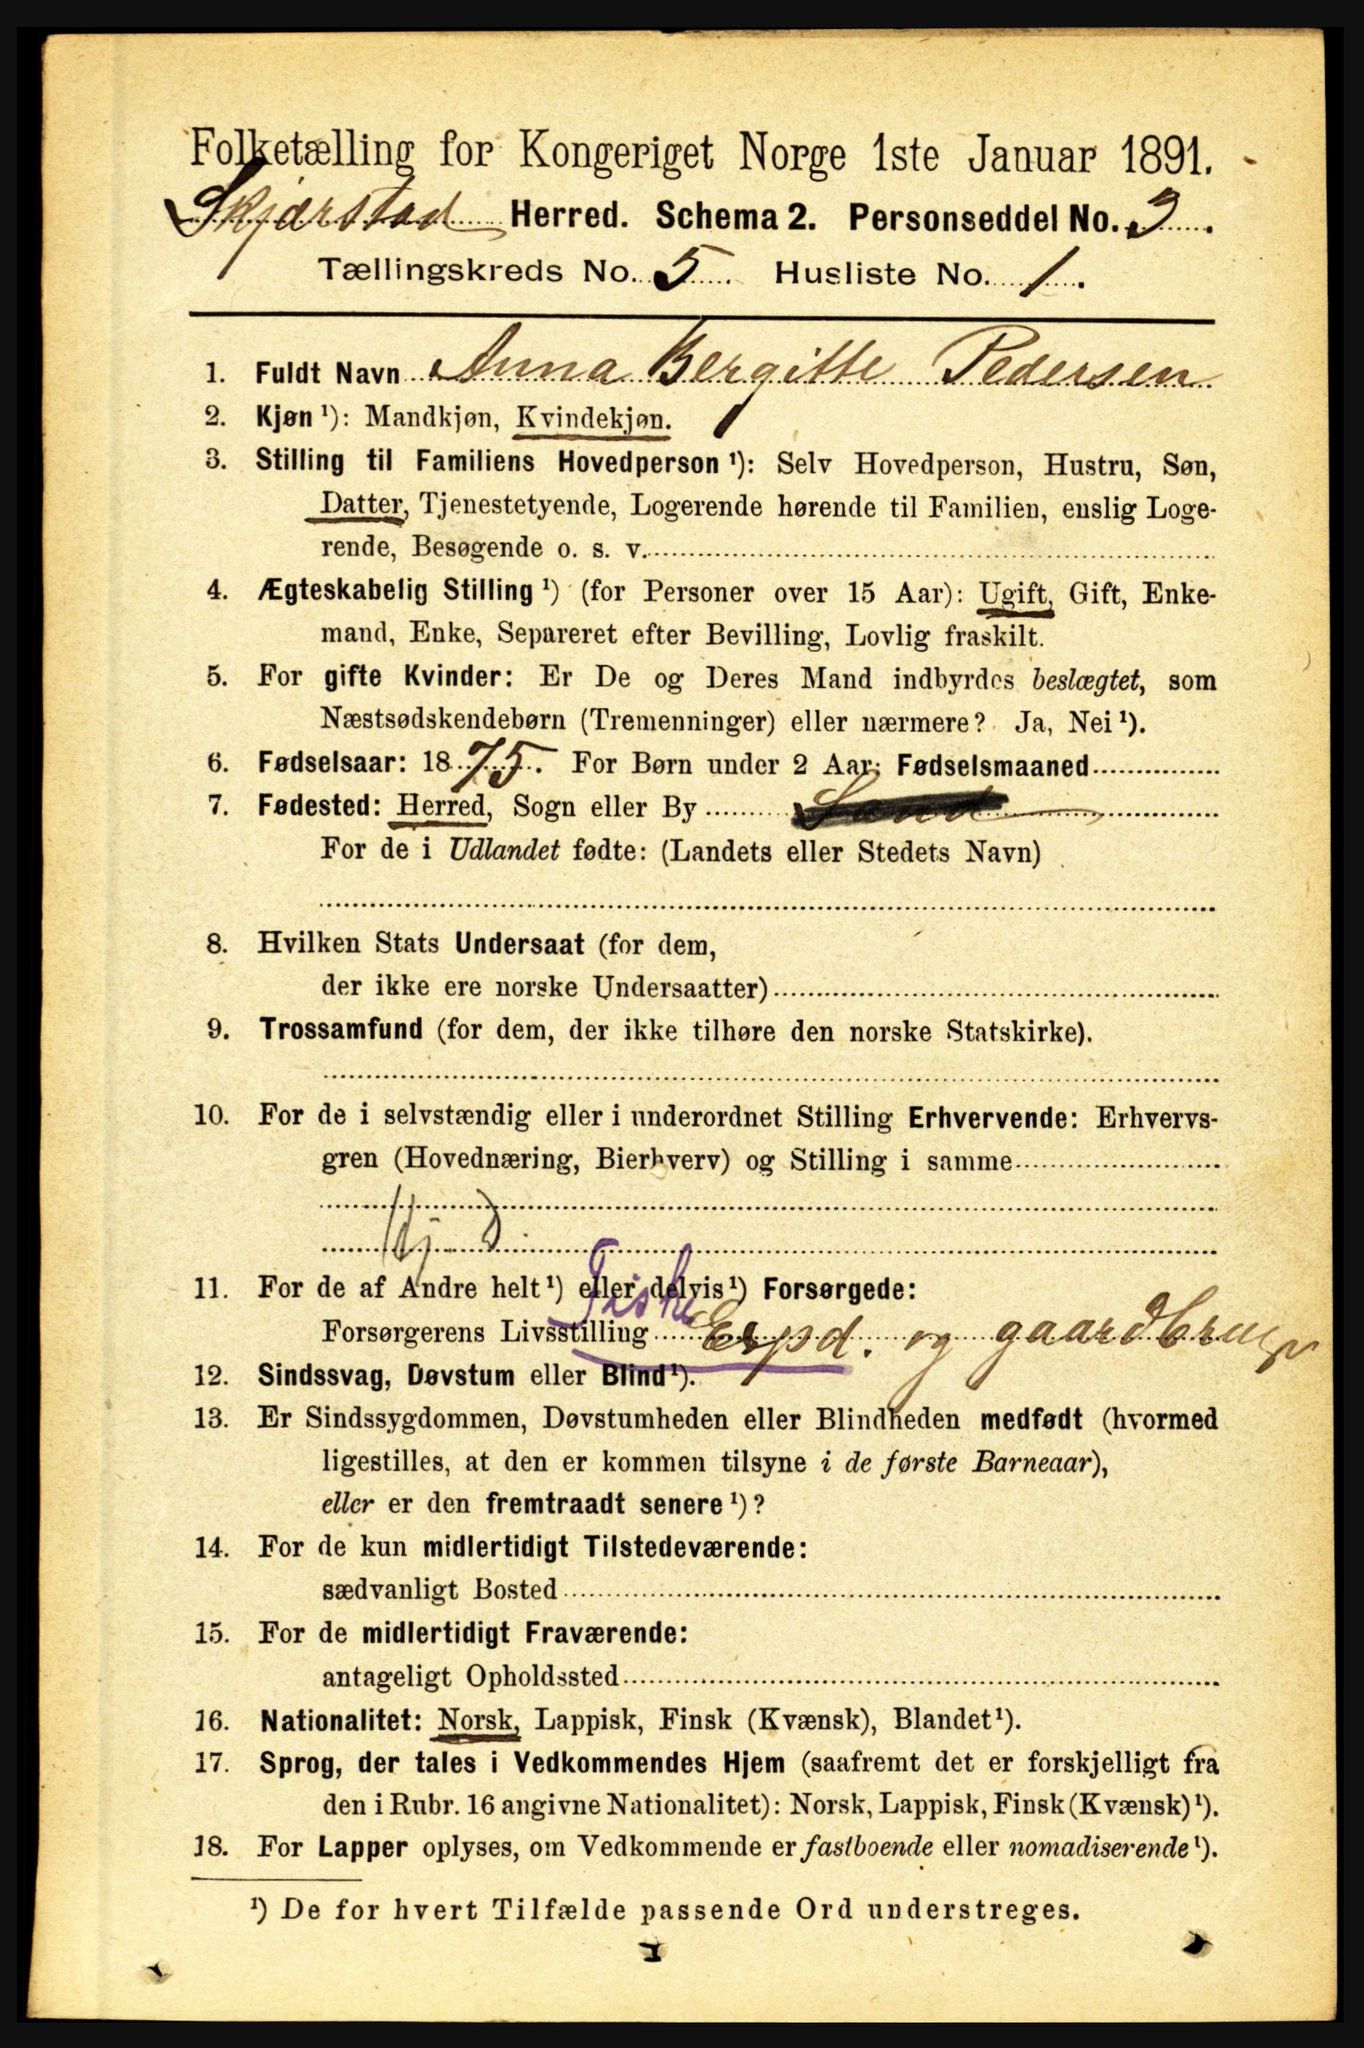 Folketælling for Kongeriget Norge 1ste Januar 1891.
Skjærstad Herred. Schema 2. Personseddel No. 3.
Tællingskreds No. 5. Husliste No. 1.
1. Fuldt Navn Anna Bergitte Pedersen
2. Kjøn ¹): Mandkjøn, Kvindekjøn.
3. Stilling til Familiens Hovedperson ¹): Selv Hovedperson, Hustru, Søn,
Datter, Tjenestetyende, Logerende hørende til Familien, enslig Loge-
rende, Besøgende o. s. v.
4. Ægteskabelig Stilling ¹) (for Personer over 15 Aar): Ugift, Gift, Enke-
mand, Enke, Separeret efter Bevilling, Lovlig fraskilt.
5. For gifte Kvinder: Er De og Deres Mand indbyrdes beslægtet, som
Næstsødskendebørn (Tremenninger) eller nærmere? Ja, Nei ¹).
6. Fødselsaar: 1875. For Børn under 2 Aar: Fødselsmaaned
7. Fødested: Herred, Sogn eller By
For de i Udlandet fødte: (Landets eller Stedets Navn)
8. Hvilken Stats Undersaat (for dem,
der ikke ere norske Undersaatter)
9. Trossamfund (for dem, der ikke tilhøre den norske Statskirke).
10. For de i selvstændig eller i underordnet Stilling Erhvervende: Erhvervs-
gren (Hovednæring, Bierhverv) og Stilling i samme
11. For de af Andre helt ¹) eller delvis ¹) Forsørgede:
Fiske
Forsørgerens Livsstilling Expd. og gaardbrug
12. Sindssvag, Døvstum eller Blind ¹).
13. Er Sindssygdommen, Døvstumheden eller Blindheden medfødt (hvormed
ligestilles, at den er kommen tilsyne i de første Barneaar),
eller er den fremtraadt senere ¹)?
14. For de kun midlertidigt Tilstedeværende:
sædvanligt Bosted
15. For de midlertidigt Fraværende:
antageligt Opholdssted
16. Nationalitet: Norsk, Lappisk, Finsk (Kvænsk), Blandet ¹).
17. Sprog, der tales i Vedkommendes Hjem (saafremt det er forskjelligt fra
den i Rubr. 16 angivne Nationalitet): Norsk, Lappisk, Finsk (Kvænsk) ¹).
18. For Lapper oplyses, om Vedkommende er fastboende eller nomadiserende ¹).
¹) De for hvert Tilfælde passende Ord understreges.